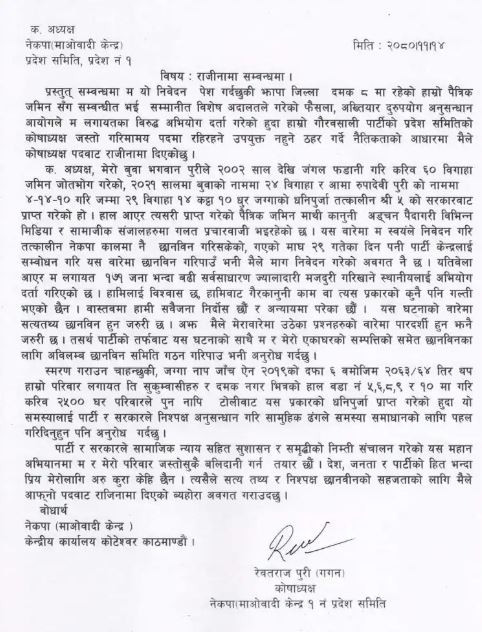 क. अध्यक्ष
नेकपा(माओवादी केन्द्र)
मिति : २०८०।११।१४
प्रदेश समिति, प्रदेश नं १
विषय : राजीनामा सम्बन्धमा ।
प्रस्तुत् सम्बन्धमा म यो निवेदन पेश गर्दछुकी झापा जिल्ला दमक ८ मा रहेको हाम्रो पैत्रिक
जमिन सँग सम्बन्धीत भई सम्मानीत विशेष अदालतले गरेको फैसला, अख्तियार दुरुपयोग अनुसन्धान
आयोगले म लगायतका बिरुद्ध अभियोग दर्ता गरेको हुदा हाम्रो गौरवसाली पार्टीको प्रदेश समितिको
कोषाध्यक्ष जस्तो गरिमामय पदमा रहिरहने उपयुक्त नहुने ठहर गर्दै नैतिकताको आधारमा मैले
कोषाध्यक्ष पदबाट राजीनामा दिएकोछु ।
क. अध्यक्ष, मेरो बुबा भगवान पुरीले २००२ साल देखि जंगल फडानी गरि करिव ६० विगाहा
जमिन जोतभोग गरेको, २०२१ सालमा बुवाको नाममा २४ विगाहा र आमा रुपादेवी पुरी को नाममा
४-१४-१० गरि जम्मा २९ विगाहा १४ कट्ठा १० धुर जग्गाको धनिपुर्जा तत्कालीन श्री ५ को सरकारबाट
प्राप्त गरेको हो । हाल आएर त्यसरी प्राप्त गरेको पैत्रिक जमिन माथी कानुनी अड्चन पैदागरी बिभिन्न
मिडिया र सामाजीक संजालहरुमा गलत प्रचारवाजी भइरहेको छ । यस बारेमा म स्वयंले निवेदन गरि
तत्कालीन नेकपा कालमा नै छानविन गरिसकेको, गएको माघ २९ गतेका दिन पनी पार्टी केन्द्रलाई
सम्वोधन गरि यस बारेमा छानविन गरिपाउँ भनी मैले माग निवेदन गरेको अवगत नै छ । यतिबेला
आएर म लगायत १७१ जना भन्दा बढी सर्वसाधारण ज्यालादारी मजदुरी गरिखाने स्थानीयलाई अभियोग
दर्ता गरिएको छ । हामिलाई विश्वास छ, हामिबाट गैरकानुनी काम वा त्यस प्रकारको कुनै पनि गल्ती
भएको छैन । वास्तवमा हामी सवैजना निर्दोस छौं र अन्यायमा परेका छौं । यस घटनाको बारेमा
सत्यतथ्य छानविन हुन जरुरी छ । अझ मैले मेराबारेमा उठेका प्रश्नहरुको बारेमा पारदर्शी हुन झनै
जरुरी छ । तसर्थ पार्टीको तर्फबाट यस घटनाको साथै म र मेरो एकाघरको सम्पत्तिको समेत छानविनका
लागि अविलम्ब छानविन समिति गठन गरिपाउ भनी अनुरोध गर्दछु ।
स्मरण गराउन चाहन्छुकी, जग्गा नाप जाँच ऐन २०१९को दफा ६ बमोजिम २०६३/६४ तिर थप
हाम्रो परिवार लगायत ति सुकुम्वासीहरु र दमक नगर भित्रको हाल वडा नं ५,६,८,९ र १० मा गरि
करिव २५०० घर परिवारले पुन नापि टोलीबाट यस प्रकारको धनिपुर्जा प्राप्त गरेको हुदा यो
समस्यालाई पार्टी र सरकारले निश्पक्ष अनुसन्धान गरि सामुहिक ढंगले समस्या समाधानको लागि पहल
गरिदिनुहुन पनि अनुरोध गर्दछु ।
पार्टी र सरकारले सामाजिक न्याय सहित सुशासन र समृद्धीको निम्ती संचालन गरेको यस महान
अभियानमा म र मेरो परिवार जस्तोसुकै बलिदानी गर्न तयार छौं । देश, जनता र पार्टीको हित भन्दा
प्रिय मेरोलागि अरु कुरा केहि छैन । त्यसैले सत्य तथ्य र निश्पक्ष छानवीनको सहजताको लागि मैले
आफ्नो पदवाट राजिनामा दिएको ब्यहोरा अवगत गराउदछु ।
बोधार्थ
नेकपा (माओवादी केन्द्र )
केन्द्रीय कार्यालय कोटेश्वर काठमाण्डौ ।
रेवतराज पुरी (गगन)
कोषाध्यक्ष
नेकपा(माओवादी केन्द्र १ नं प्रदेश समिति